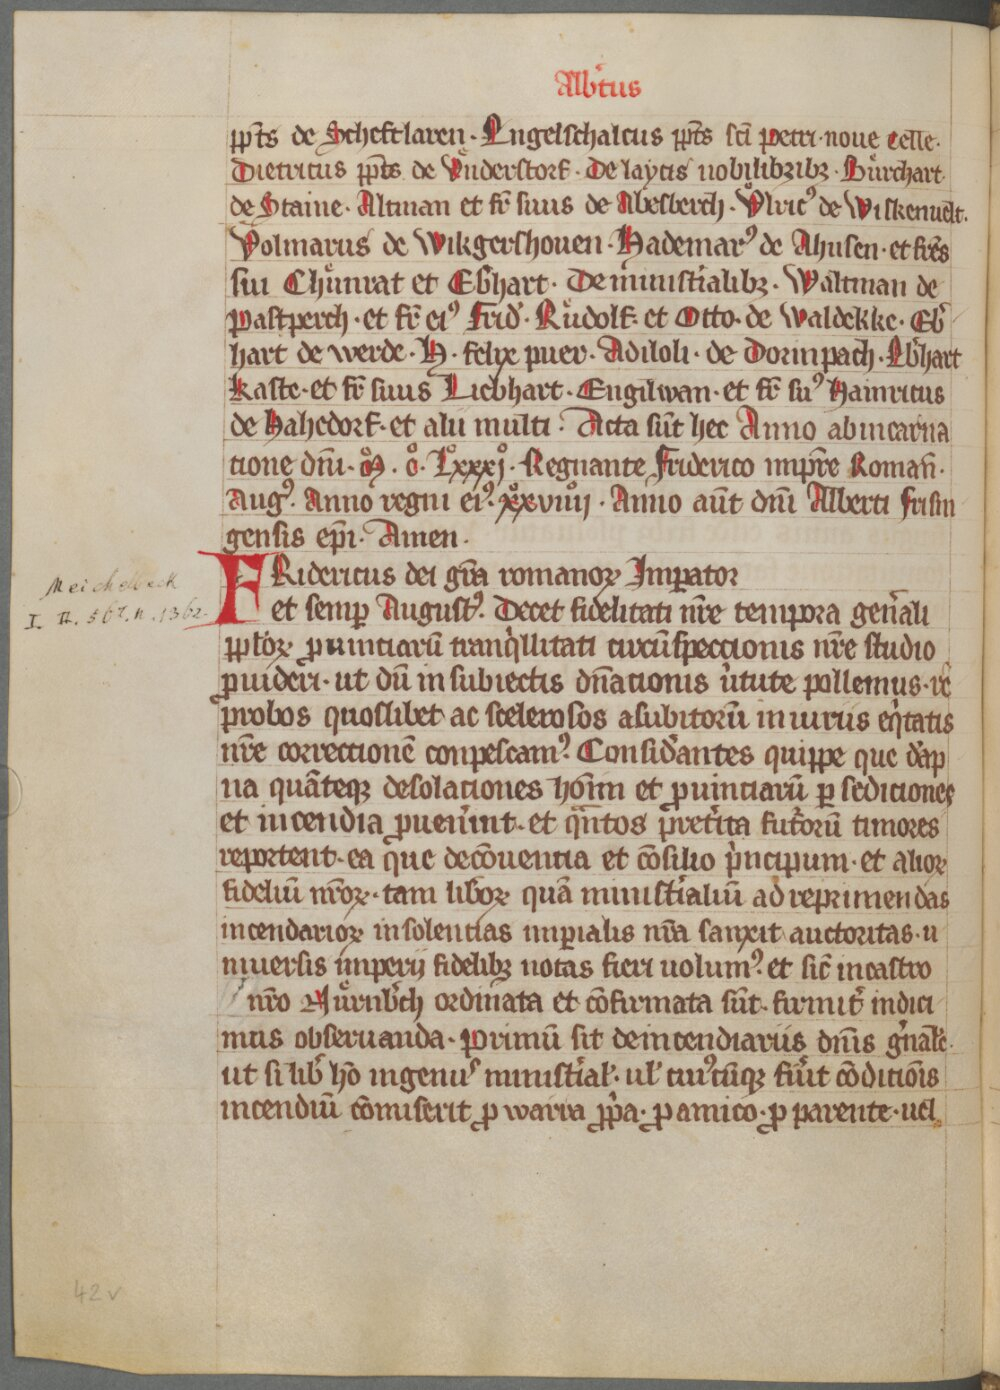 Alb̄tus
pp̄ts de Scheftlaren · Engelschalcus pp̄ts sc̄i Petri · noue celle ·
Dietricus pp̄ts de Vnderstorf · De laycis nobilibꝫ · Bůrchart
de Staine · Altman et fr̄ suus de Abesberch · Vͦlricꝰ de Wiskenuelt ·
Volmarus de Wikgershouen · Hademarꝰ de Ahusen · et fr̄es
sui Chůnrat et Eb̄hart · De ministīalibꝫ · Waltman de
Pastperch · et fr̄ eiꝰ Frid̄ · Růdolf · et Otto · de Waldekke · Eb̄
hart de Werde · H · felix puer · Adiloli · de Dorinpach · Eb̄hart
Kaste · et fr̄ suus Liebhart · Engilwan · et fr̄ suꝰ Hainricus
de Hahedorf · et alii multi · Acta sūt hec Anno ab incarna
tione dn̄i · ͦM · ͦC · Lͦxxxͦj · Regnante Friderico imp̄re Roman̄ ·
Augꝰ · Anno regni eiꝰ · xxͦviiiͦj · Anno aūt dn̄i Alberti Frisin
gensis ep̄i · Amen ·
FRidericus dei gr̄a romanoꝝ Imꝑator
et semꝑ Augustꝰ · Decet fidelitati nr̄e tempora gen̄ali
pp̄loꝝ ꝓuinciarū tranq̇llitati circūspeccionis nr̄e studio
ꝓuideri · ut dū in subiectis dn̄ationis ūtute pollemus · re
probos quoslibet ac scelerosos a subitorū iniuriis eq̇tatis
nr̄e correctionē conpescamꝰ · Consid̄antes quippe que dāp
na quāteqꝫ desolaciones hoīm et ꝓuinciarū ꝑ sediciones
et incendia ꝓuen̄int · et qͣntos p̄ret̄ita fut̄orū timores
reportent · ea que de cōuentia et cōsilio p̄ncipum · et alioꝝ
fideliū nr̄oꝝ · tam lib̄oꝝ quā ministīaliū ad reprimendas
incendarioꝝ insolencias imꝑialis nr̄a sanxit auctoritas · u
niuersis imperij fidelibꝫ notas fieri uolumꝰ · et sic̄ in castro
nr̄o Nůrnb̄ch ordinata et cōfirmata sūt · firmit̄ indici
mus obseruanda · Primū sit de incendiariis dn̄is gn̄ale ·
ut si lib̄ hō ingenuꝰ ministīal̄ · ul̄ cuiꝰcūqꝫ fūit cōditiōis
incendiū cōmiserit ꝓ warra ꝓp̄a · ꝓ amico · ꝓ parente · uel
Meichelbeck
I. II. 567. n. 1362.
42v